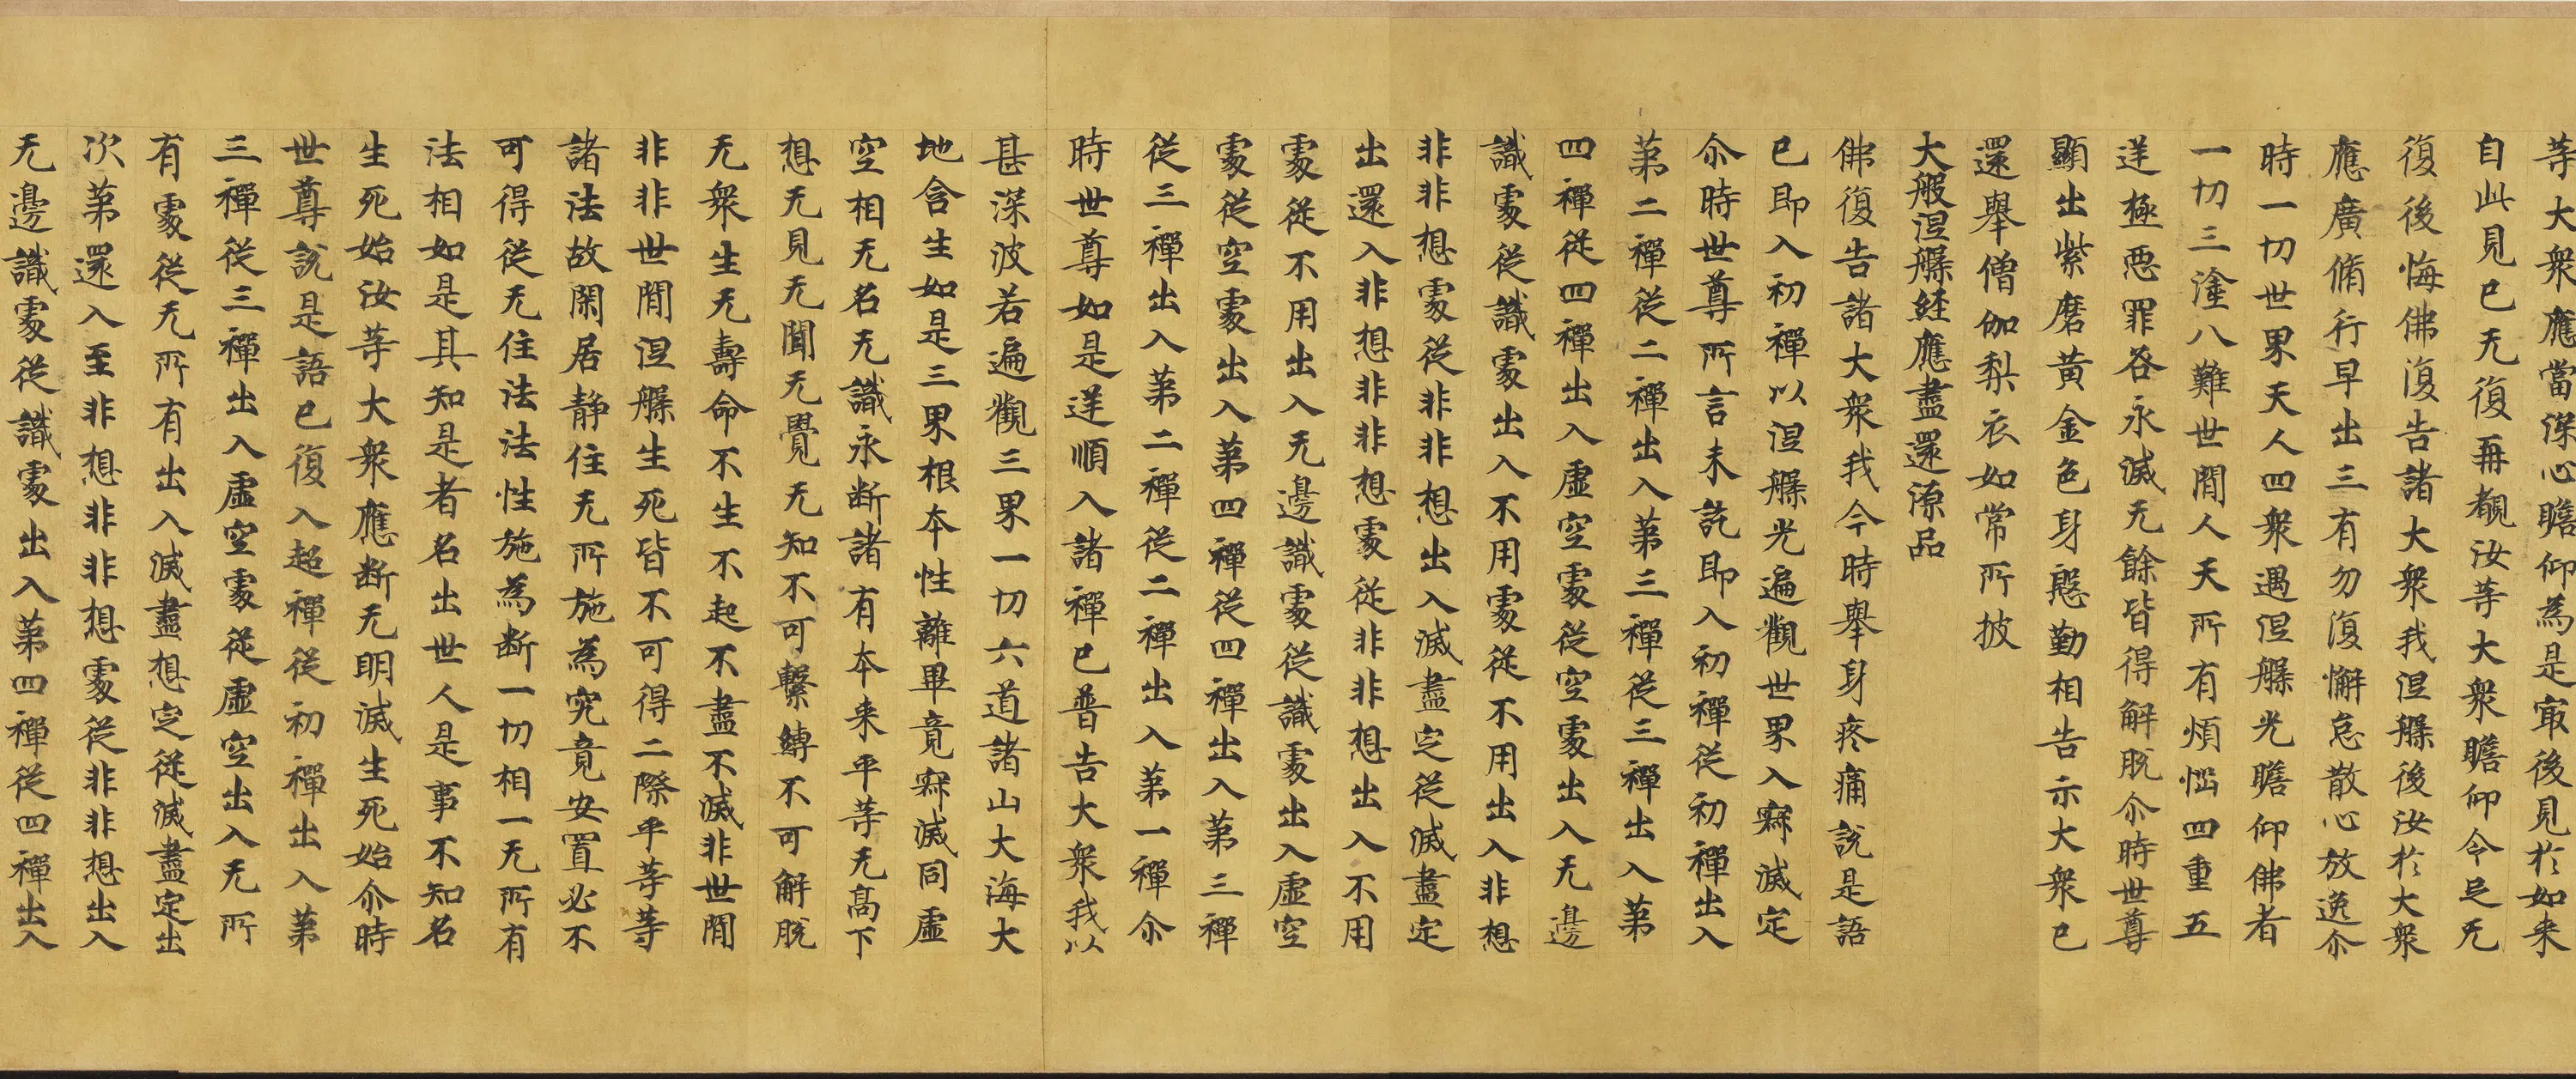 等大衆應當深心瞻仰為是冣後見於如来
自此見已无復再覩汝等大衆瞻仰令足无
復後悔佛復告諸大衆我涅槃後汝於大衆
應廣脩行早出三有勿復懈怠散心放逸尒
時一切世界天人四衆遇涅槃光瞻仰佛者
一切三塗八難世間人天所有煩惱四重五
逆極惡罪咎永滅无餘皆得解脫尒時世尊
顯出紫磨黃金色身慇勤相告示大衆已
還舉僧伽梨衣如常所披
大般涅槃經應盡還源品
佛復告諸大衆我今時舉身疼痛說是語
已即入初禪以涅槃光遍觀世界入寂滅定
尒時世尊所言未訖即入初禪從初禪出入
第二禪從二禪出入第三禪從三禪出入第
四禪從四禪出入虛空處從空處出入无邊
識處從識處出入不用處從不用出入非想
非非想處從非非想出入滅盡定從滅盡定
出還入非想非非想處從非非想出入不用
處從不用出入无邊識處從識處出入虛空
處從空處出入第四禪從四禪出入第三禪
從三禪出入第二禪從二禪出入第一禪尒
時世尊如是逆順入諸禪已普告大衆我以
甚深波若遍觀三界一切六道諸山大海大
地含生如是三界根本性離畢竟寂滅同虛
空相无名无識永断諸有本来平等无高下
想无見无聞无覺无知不可繫縛不可解脫
无衆生无壽命不生不起不盡不滅非世間
非非世間涅槃生死皆不可得二際平等等
諸法故閑居静住无所施為究竟安置必不
可得從无住法法性施為断一切相一无所有
法相如是其知是者名出世人是事不知名
生死始汝等大衆應断无明滅生死始尒時
世尊說是語已復入超禪從初禪出入第
三禪從三禪出入虛空處從虛空出入无所
有處從无所有出入滅盡想定從滅盡定出
次第還入至非想非非想處從非非想出入
无邊識處從識處出入第四禪從四禪出入